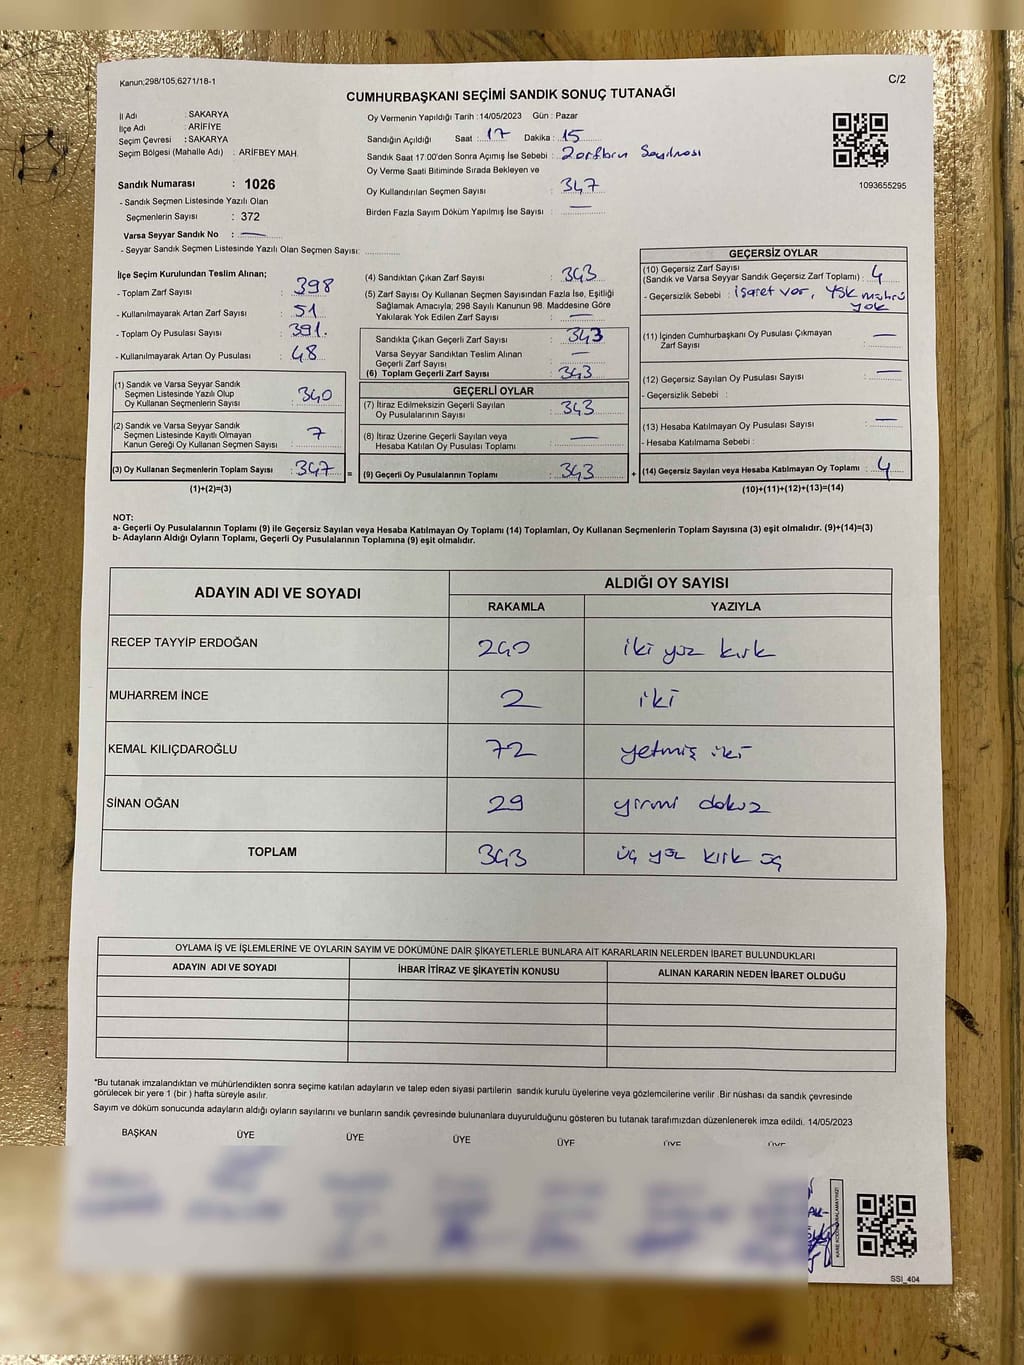 Kanun;298/105,6271/18-1
C/2
CUMHURBAŞKANI SEÇİMİ SANDIK SONUÇ TUTANAĞI
İl Adı : SAKARYA
İlçe Adı : ARİFİYE
Seçim Çevresi : SAKARYA
Seçim Bölgesi (Mahalle Adı) : ARİFBEY MAH.
Sandık Numarası : 1026
- Sandık Seçmen Listesinde Yazılı Olan
Seçmenlerin Sayısı : 372
Varsa Seyyar Sandık No : —
- Seyyar Sandık Seçmen Listesinde Yazılı Olan Seçmen Sayısı:
Oy Vermenin Yapıldığı Tarih : 14/05/2023 Gün : Pazar
Sandığın Açıldığı Saat : 17 Dakika : 15
Sandık Saat 17.00'den Sonra Açımış İse Sebebi : Zarfların Sayılması
Oy Verme Saati Bitiminde Sırada Bekleyen ve
Oy Kullandırılan Seçmen Sayısı : 347
Birden Fazla Sayım Döküm Yapılmış İse Sayısı : —
1093655295
İlçe Seçim Kurulundan Teslim Alınan;
- Toplam Zarf Sayısı : 398
- Kullanılmayarak Artan Zarf Sayısı : 51
- Toplam Oy Pusulası Sayısı : 391.
- Kullanılmayarak Artan Oy Pusulası : 48
(1) Sandık ve Varsa Seyyar Sandık
Seçmen Listesinde Yazılı Olup
Oy Kullanan Seçmenlerin Sayısı : 340
(2) Sandık ve Varsa Seyyar Sandık
Seçmen Listesinde Kayıtlı Olmayan
Kanun Gereği Oy Kullanan Seçmen Sayısı : 7
(3) Oy Kullanan Seçmenlerin Toplam Sayısı : 347 =
(1)+(2)=(3)
(4) Sandıktan Çıkan Zarf Sayısı : 343
(5) Zarf Sayısı Oy Kullanan Seçmen Sayısından Fazla İse, Eşitliği
Sağlamak Amacıyla; 298 Sayılı Kanunun 98. Maddesine Göre
Yakılarak Yok Edilen Zarf Sayısı : —
Sandıkta Çıkan Geçerli Zarf Sayısı : 343
Varsa Seyyar Sandıktan Teslim Alınan
Geçerli Zarf Sayısı : —
(6) Toplam Geçerli Zarf Sayısı : 343
GEÇERLİ OYLAR
(7) İtiraz Edilmeksizin Geçerli Sayılan
Oy Pusulalarının Sayısı : 343
(8) İtiraz Üzerine Geçerli Sayılan veya
Hesaba Katılan Oy Pusulası Toplamı : —
(9) Geçerli Oy Pusulalarının Toplamı : 343 +
GEÇERSİZ OYLAR
(10) Geçersiz Zarf Sayısı
(Sandık ve Varsa Seyyar Sandık Geçersiz Zarf Toplamı) : 4
- Geçersizlik Sebebi : işaret var, YSK mührü
yok
(11) İçinden Cumhurbaşkanı Oy Pusulası Çıkmayan
Zarf Sayısı : —
(12) Geçersiz Sayılan Oy Pusulası Sayısı : —
- Geçersizlik Sebebi :
(13) Hesaba Katılmayan Oy Pusulası Sayısı : —
- Hesaba Katılmama Sebebi :
(14) Geçersiz Sayılan veya Hesaba Katılmayan Oy Toplamı : 4
(10)+(11)+(12)+(13)=(14)
NOT:
a- Geçerli Oy Pusulalarının Toplamı (9) ile Geçersiz Sayılan veya Hesaba Katılmayan Oy Toplamı (14) Toplamları, Oy Kullanan Seçmenlerin Toplam Sayısına (3) eşit olmalıdır. (9)+(14)=(3)
b- Adayların Aldığı Oyların Toplamı, Geçerli Oy Pusulalarının Toplamına (9) eşit olmalıdır.
ADAYIN ADI VE SOYADI
ALDIĞI OY SAYISI
RAKAMLA YAZIYLA
RECEP TAYYİP ERDOĞAN 240 iki yüz kırk
MUHARREM İNCE 2 iki
KEMAL KILIÇDAROĞLU 72 yetmiş iki
SİNAN OĞAN 29 yirmi dokuz
TOPLAM 343 üç yüz kırk üç
OYLAMA İŞ VE İŞLEMLERİNE VE OYLARIN SAYIM VE DÖKÜMÜNE DAİR ŞİKAYETLERLE BUNLARA AİT KARARLARIN NELERDEN İBARET BULUNDUKLARI
ADAYIN ADI VE SOYADI İHBAR İTİRAZ VE ŞİKAYETİN KONUSU ALINAN KARARIN NEDEN İBARET OLDUĞU
*Bu tutanak imzalandıktan ve mühürlendikten sonra seçime katılan adayların ve talep eden siyasi partilerin sandık kurulu üyelerine veya gözlemcilerine verilir .Bir nüshası da sandık çevresinde
görülecek bir yere 1 (bir ) hafta süreyle asılır.
Sayım ve döküm sonucunda adayların aldığı oyların sayılarını ve bunların sandık çevresinde bulunanlara duyurulduğunu gösteren bu tutanak tarafımızdan düzenlenerek imza edildi. 14/05/2023
BAŞKAN ÜYE ÜYE ÜYE ÜYE ÜYE ÜYE
SSI_404